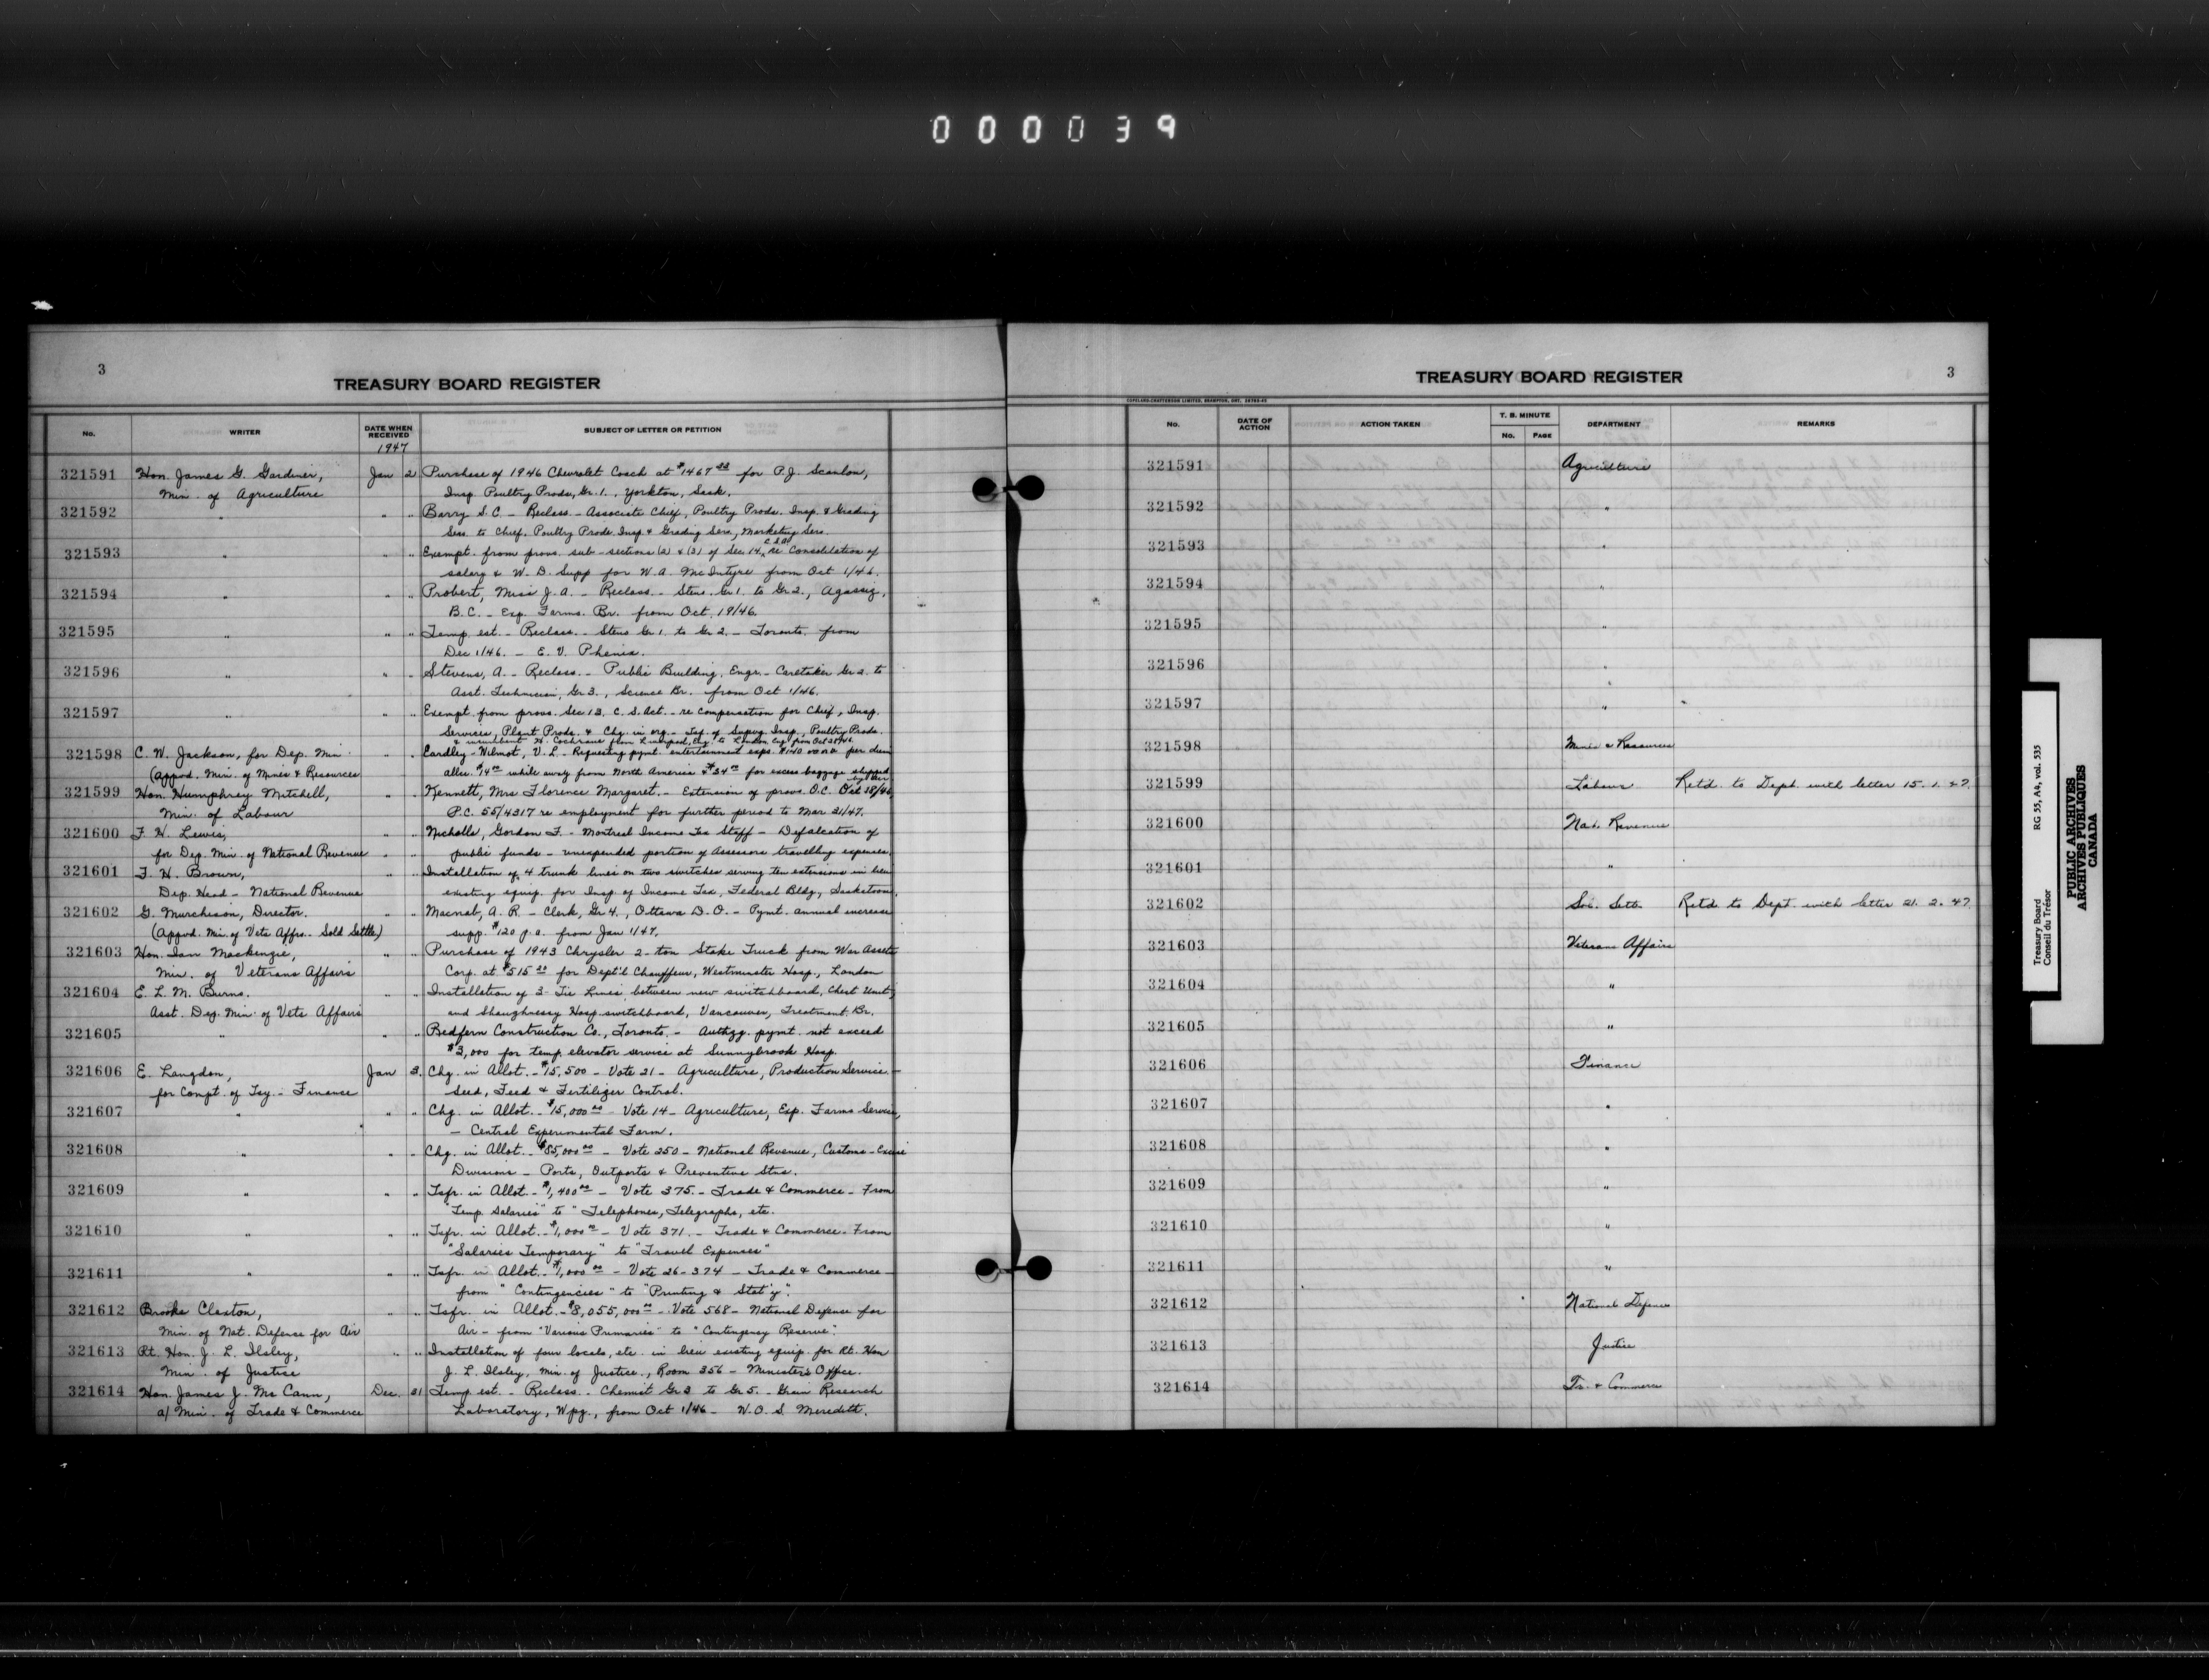 000039
3
TREASURY BOARD REGISTER
No.
WRITER
DATE WHEN RECEIVED
SUBJECT OF LETTER OR PETITION
1947
321591 Hon. James G. Gardiner, Jan 2 Purchase of 1946 Chevrolet Coach at $1467 for P.J. Scanlon,
Min. of Agriculture Insp. Poultry Prods, Gr. 1., Yorkton, Sask.
321592 " " " Barry S.C. - Reclass. - Associate Chief, Poultry Prods. Insp. & Grading
Serv. to Chief, Poultry Prods Insp & Grading Serv, Marketing Serv.
321593 " " " Exempt. from provs. sub-sections (2) & (3) of Sec. 14, C.S.A. re Consolidation of
salary & W.D. Supp for W.A. McIntyre from Oct 1/46.
321594 " " " Probert, Miss J.A. - Reclass. - Steno. Gr 1. to Gr 2., Agassiz,
B.C. - Exp. Farms. Br. from Oct. 19/46.
321595 " " " Temp. est. - Reclass. - Steno Gr 1. to Gr 2. - Toronto, from
Dec 1/46. - E.V. Phenix.
321596 " " " Stevens, A. - Reclass. - Public Building, Engr. - Caretaker Gr 2. to
Asst. Technician, Gr 3., Science Br. from Oct 1/46.
321597 " " " Exempt from provs. Sec 13, C.S. Act. - re compensation for Chief, Insp.
Services, Plant Prods. & Chg. in org. - Tsf. of Superg. Insp., Poultry Prods.
& incumbent H. Cochrane from Liverpool, Eng. to London Eng. from Oct
321598 C.W. Jackson, for Dep. Min " " Eardley-Wilmot, V.L. - Requesting pymt. entertainment exps. $140.00 per diem
(appvd. Min. of Mines & Resources allce. $14 while away from North America & $34 for excess baggage shipped by air
321599 Hon. Humphrey Mitchell, " " Kennett, Mrs Florence Margaret. - Extension of provs. O.C. Oct 18/46,
Min. of Labour P.C. 55/4317 re employment for further period to Mar 31/47.
321600 F.H. Lewis, " " Nicholls, Gordon F. - Montreal Income Tax Staff - Defalcation of
for Dep. Min. of National Revenue " " public funds - unexpended portion of Assessors travelling expenses.
321601 F.H. Brown, " " Installation of 4 trunk lines on two switches serving ten extensions in lieu
Dep. Head - National Revenue existing equip. for Insp of Income Tax, Federal Bldg, Saskatoon.
321602 G. Murchison, Director. " " Macnab, A.R. - Clerk, Gr 4., Ottawa D.O. - Pymt. annual increase
(Appvd. Min. of Vets Affrs. - Sold Settle) supp. $120 p.a. from Jan 1/47.
321603 Hon. Ian Mackenzie, " " Purchase of 1943 Chrysler 2-ton Stake Truck from War Assets
Min. of Veterans Affairs Corp. at $515 for Dept'l Chauffeur, Westminster Hosp., London
321604 E.L.M. Burns. " " Installation of 3 Tie Lines, between new switchboard, Chest Unit,
Asst. Dep. Min. of Vets Affairs and Shaughnessy Hosp switchboard, Vancouver, Treatment Br.
321605 " " " Redfern Construction Co., Toronto. - Authzg. pymt. not exceed
$3,000 for temp. elevator service at Sunnybrook Hosp.
321606 E. Langdon, Jan 3. Chg. in Allot. - $15,500 - Vote 21 - Agriculture, Production Service -
for Compt. of Tsy. - Finance Seed, Feed & Fertilizer Control.
321607 " " " Chg. in Allot. - $15,000 - Vote 14 - Agriculture, Exp. Farms Service,
- Central Experimental Farm.
321608 " " " Chg. in Allot. - $85,000 - Vote 250 - National Revenue, Customs-Excise
Divisions - Ports, Outports & Preventive Stns.
321609 " " " Tsfr. in Allot. - $1,400 - Vote 375. - Trade & Commerce - From
"Temp. Salaries" to "Telephones, Telegraphs, etc.
321610 " " " Tsfr. in Allot. - $1,000 - Vote 371. - Trade & Commerce. From
"Salaries Temporary" to "Travel Expenses"
321611 " " " Tsfr. in Allot. - $1,000 - Vote 26-374 - Trade & Commerce -
from "Contingencies" to "Printing & Stat'y".
321612 Brooke Claxton, " " Tsfr. in Allot. - $8,055,000 - Vote 568 - National Defense for
Min. of Nat. Defense for Air Air - from "Various Primaries" to "Contingency Reserve".
321613 Rt. Hon. J.L. Ilsley, " " Installation of four locals, etc. in lieu existing equip. for Rt. Hon
Min. of Justice J.L. Ilsley, Min. of Justice, Room 356 - Minister's Office.
321614 Hon. James J. McCann, Dec. 31 Temp. est. - Reclass. - Chemist Gr 3 to Gr 5. - Grain Research
a/ Min. of Trade & Commerce Laboratory, Wpg., from Oct 1/46 - W.O.S. Meredith.
TREASURY BOARD REGISTER
3
COPELAND-CHATTERSON LIMITED, BRAMPTON, ONT.
No.
DATE OF ACTION
ACTION TAKEN
T. B. MINUTE
No.
PAGE
DEPARTMENT
REMARKS
321591 Agriculture
321592 "
321593 "
321594 "
321595 "
321596 "
321597 "
321598 Mines & Resources
321599 Labour Retd. to Dept. with letter 15.1.47.
321600 Nat. Revenue
321601 "
321602 Sol. Sett. Retd. to Dept. with letter 21.2.47.
321603 Veterans Affairs
321604 "
321605 "
321606 Finance
321607 "
321608 "
321609 "
321610 "
321611 "
321612 National Defence
321613 Justice
321614 Tr. & Commerce
Treasury Board
Conseil du Trésor
RG 55, A4, vol. 535
PUBLIC ARCHIVES
ARCHIVES PUBLIQUES
CANADA